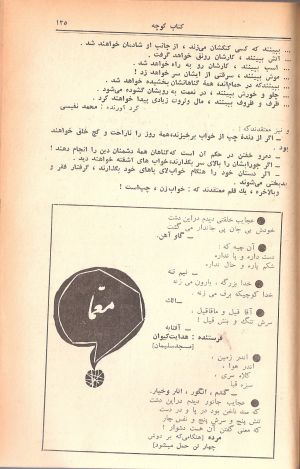 کتاب کوچه
۱۳۵
... ببینند که کسی کتکشان می‌زند، از جانب او شادمان خواهند شد.
... آتش ببینند، کارشان رونق خواهد گرفت.
... اسب ببینند، کارشان رو به راه خواهد شد.
... موش ببینند، سرقتی از ایشان سر خواهد زد!
... ببینند که در حمام‌اند، همهٔ گناهانشان بخشیده خواهد شد.
... چلو و خورش ببینند، در نعمت به رویشان گشوده می‌شود.
... ظرف و ظروف ببینند، مال و ثروت زیادی پیدا خواهند کرد.
گرد آورنده: محمد نفیسی
و نیز معتقدند که:
ــ اگر از دندهٔ چپ از خواب برخیزند، همهٔ روز را ناراحت و کج خلق خواهند
بود.
ــ دمرو خفتن در حکم آن است که گناهان همهٔ دشمنان دین را انجام دهند!
ــ اگر جورابشان را بالای سر بگذارند، خواب‌های آشفته خواهند دید.
ــ اگر دستان خود را هنگام خواب لای پاهای خود بگذارند، گرفتار فقر و
بدبختی می‌شوند.
و بالاخره، یک قلم معتقدند که: خواب زن، چپ است!
معمّا
عجایب خلقتی دیدم دراین دشت
خودش بی جان پی جاندار می گشت
ــ گاو آهن.
آن چیه که:
دست داره و پا نداره
شکم پاره و حال نداره.
ــ نیم تنه
خدا بزرگه، بارون می زنه
خدا کوچیکه برف می زنه
ــ الک
آقا قیل و ماقاقیل،
سرش تنگ و بنش قیل!
ــ آفتابه
فرستنده: هدایت کیوان
[مسجدسلیمان]
اندر زمین،
اندر هوا،
کلاه سری،
سزه قبا
ــ گندم، انگور، انار وخیار.
عجایب جانور دیدم دراین دشت
که صد ناخن بود در پا و در دست
تنش پنج و سرش پنج و نفس چار
که معنی گفتن آن هست دشوار!
مرده [هنگامی که بر دوش
چهار تن حمل می‌شود]